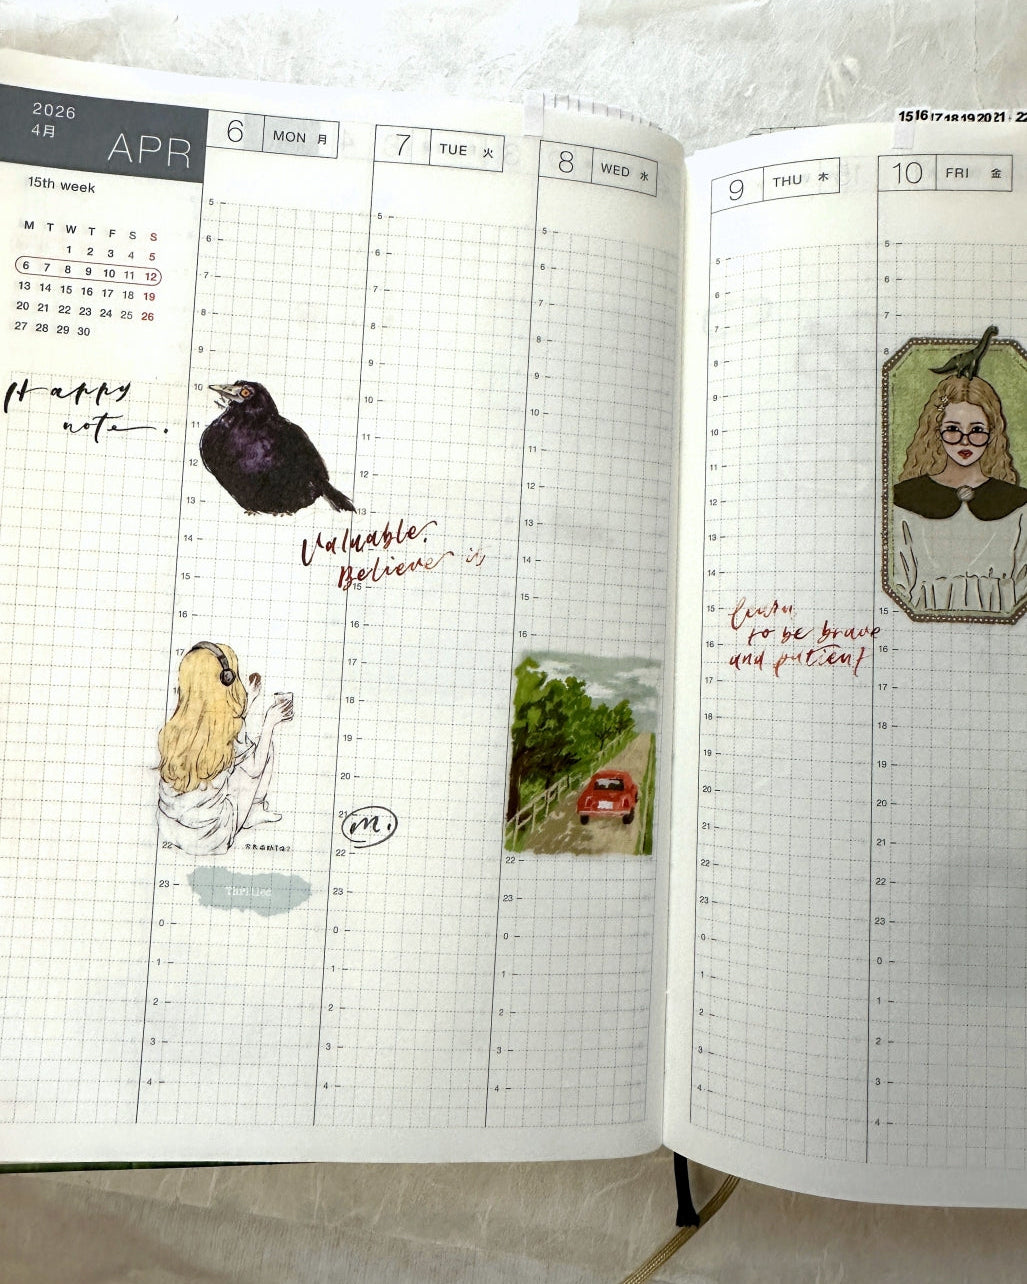 2026
4月
APR
15th week
M T W T F S S
1 2 3 4 5
6 7 8 9 10 11 12
13 14 15 16 17 18 19
20 21 22 23 24 25 26
27 28 29 30
Happy
note.
6 MON 月
5
6
7
8
9
10
11
12
13
14
15
16
17
22
23
0
1
2
3
4
Thriller
7 TUE 火
5
6
7
8
9
10
11
12
13
Valuable.
Believe is
15
16
17
18
19
20
21
m.
22
23
0
1
2
3
4
8 WED 水
5
6
7
8
9
10
11
12
13
14
15
16
22
23
0
1
2
3
4
9 THU 木
5
6
7
8
9
10
11
12
13
14
15
learn
to be brave
and patient
16
17
18
19
20
21
22
23
0
1
2
3
4
15 16 17 18 19 20 21 · 22
10 FRI 金
5
6
7
8
15
16
17
18
19
20
21
22
23
0
1
2
3
4